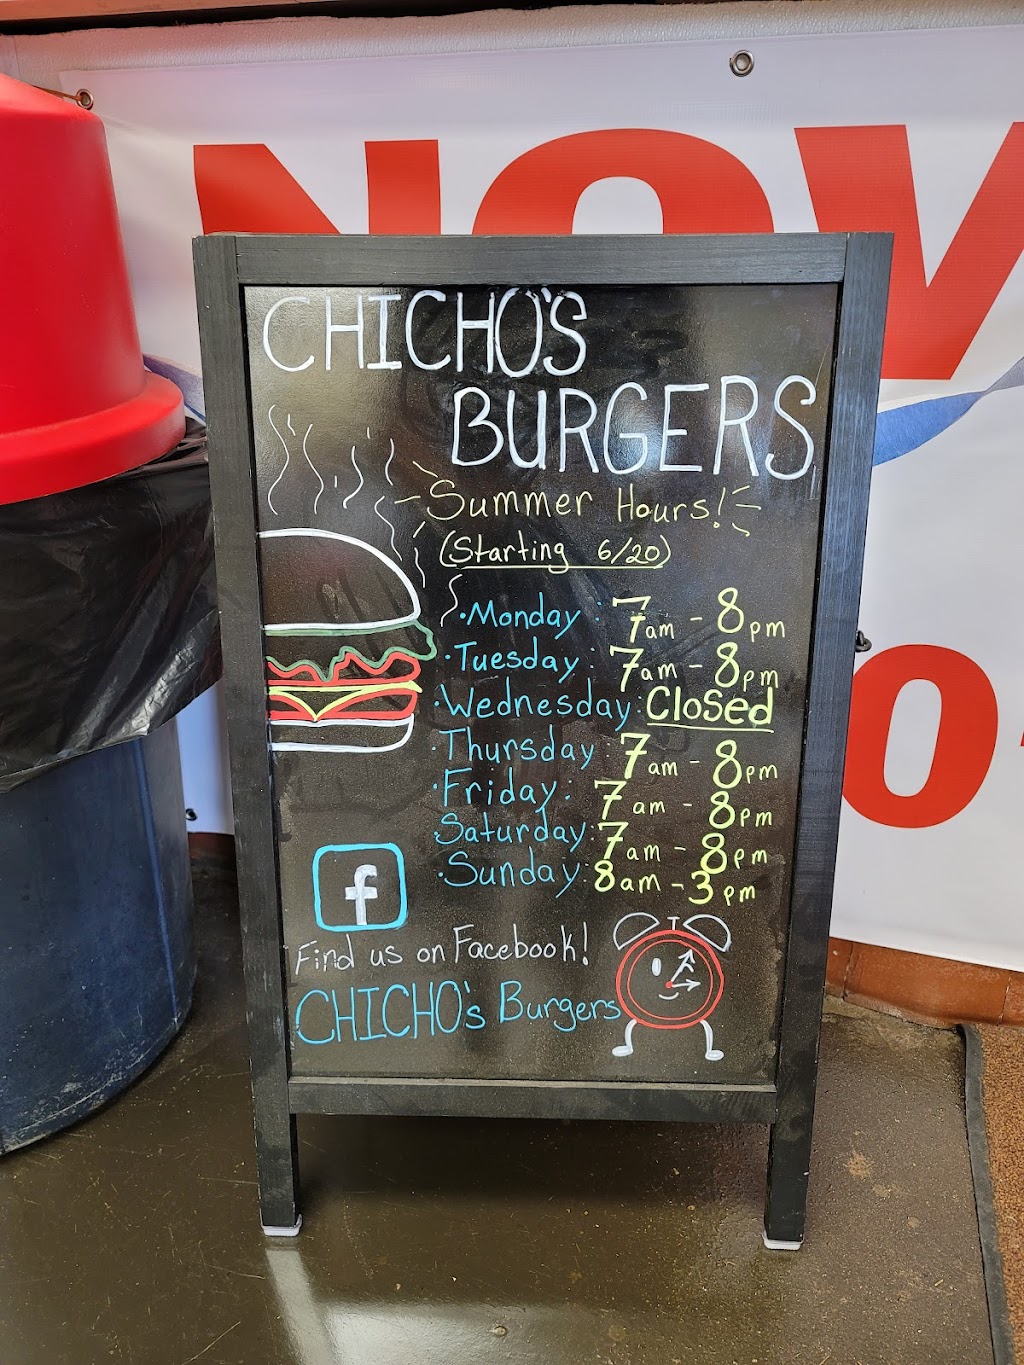 NOW
CHICHO'S
BURGERS
Summer Hours!
(Starting 6/20)
·Monday : 7am - 8pm
·Tuesday : 7am - 8pm
·Wednesday: Closed
·Thursday : 7am - 8pm
·Friday : 7am - 8pm
·Saturday: 7am - 8pm
·Sunday: 8am - 3pm
f
Find us on Facebook!
CHICHO's Burgers